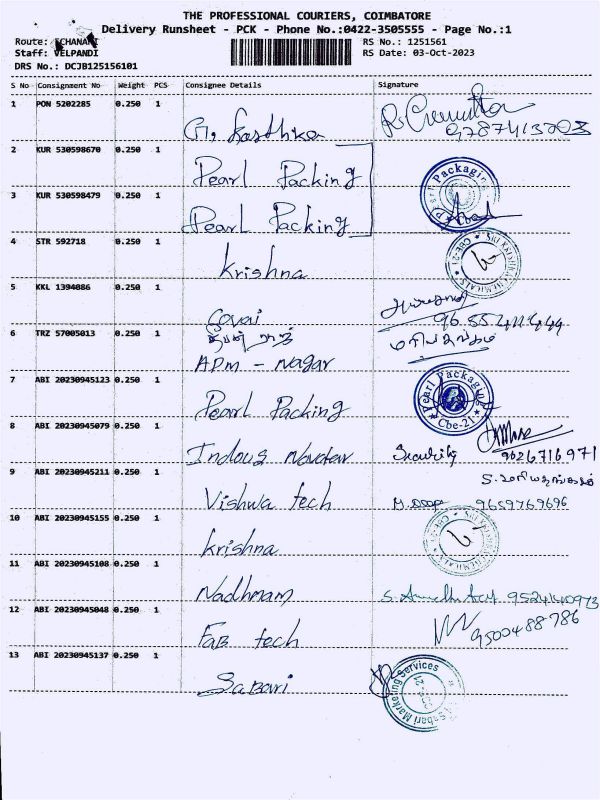 THE PROFESSIONAL COURIERS, COIMBATORE
Delivery Runsheet - PCK - Phone No.:0422-3505555 - Page No.:1
Route: ECHANARI
RS No.: 1251561
Staff: VELPANDI
RS Date: 03-Oct-2023
DRS No.: DCJB125156101
S No Consignment No Weight PCS Consignee Details Signature
1 PON 5202285 0.250 1
2 KUR 530598670 0.250 1 Pearl Packing
Pearl Packaging
3 KUR 530598479 0.250 1 Pearl Packing
4 STR 592718 0.250 1 Krishna
SRI KRISHNA CHEMICALS CBE-21
5 KKL 1394086 0.250 1 Covai
6 TRZ 57005013 0.250 1 APM - Nagar
7 ABI 20230945123 0.250 1 Pearl Packing
Pearl Packaging Cbe-21
8 ABI 20230945079 0.250 1 Security 9626716971
9 ABI 20230945211 0.250 1 Vishwa tech 9659769696
10 ABI 20230945155 0.250 1 Krishna
SRI KRISHNA CHEMICALS CBE-21
11 ABI 20230945108 0.250 1
12 ABI 20230945048 0.250 1 Fab tech 9500488786
13 ABI 20230945137 0.250 1 Sabari
Sabari Marketing Services